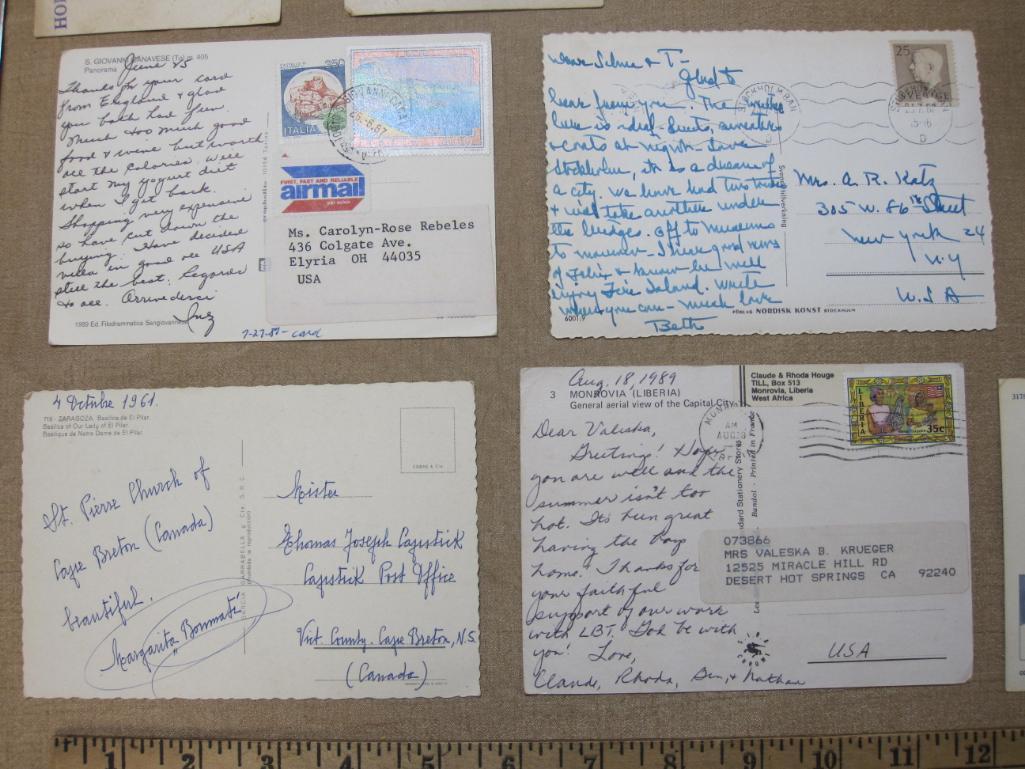 HO
S. GIOVANNI CANAVESE (To) m. 405
Panorama
June 25
Thanks for your card
from England & glad
you both had fun.
Much too much good
food & wine but worth
all the calories. Will
start my yogurt diet
when I get back.
Shopping very expensive
so have cut down the
buying. Have decided
villa in good ole USA
still the best. Regards
to all. Arrivederci
Inez
1989 Ed. Filodrammatica Sangiovannese
7-27-87- card
350
ITALIA
FIRST, FAST AND RELIABLE
airmail
Ms. Carolyn-Rose Rebeles
436 Colgate Ave.
Elyria OH 44035
USA
Dear Selma & T-
Glad to
hear from you. The weather
here is ideal - suits, sweaters
& coats at night. Love
Stockholm, it is a dream of
a city. We have had two tours
& will take another under
the bridges. Off to museums
to morrow - I have good news
of Felix & know he will
enjoy Fire Island. Write
when you can - much love
Beth
6001.9
FÖRLAG NORDISK KONST STOCKHOLM
25
STOCKHOLM BAN
Mrs. A. R. Katz
305 W. 86th Street
New York 24
N.Y
U.S.A
4 Octubre 1961.
716 - ZARAGOZA. Basílica de El Pilar.
Basilica of Our Lady of El Pilar.
Basilique de Notre Dame de El Pilar.
St. Pierre Church of
Cape Breton (Canada)
beautiful.
Margarita Bonmatí
Mister
Thomas Joseph Capstick
Capstick Post Office
Vict. County. Cape Breton, N.S.
(Canada)
Aug. 18, 1989
3 MONROVIA (LIBERIA)
General aerial view of the Capital City
Dear Valeska,
Greeting! Hope
you are well and the
summer isn't too
hot. It's been great
having the boys
home. Thanks for
your faithful
support of our work
with LBT. God be with
you! Love,
Claude, Rhoda, Ben, & Nathan
Claude & Rhoda Houge
TILL, Box 513
Monrovia, Liberia
West Africa
Printed in France
LIBERIA
35c
AM
073866
MRS VALESKA B. KRUEGER
12525 MIRACLE HILL RD
DESERT HOT SPRINGS CA 92240
USA
1 2 3 4 5 6 7 8 9 10 11 12